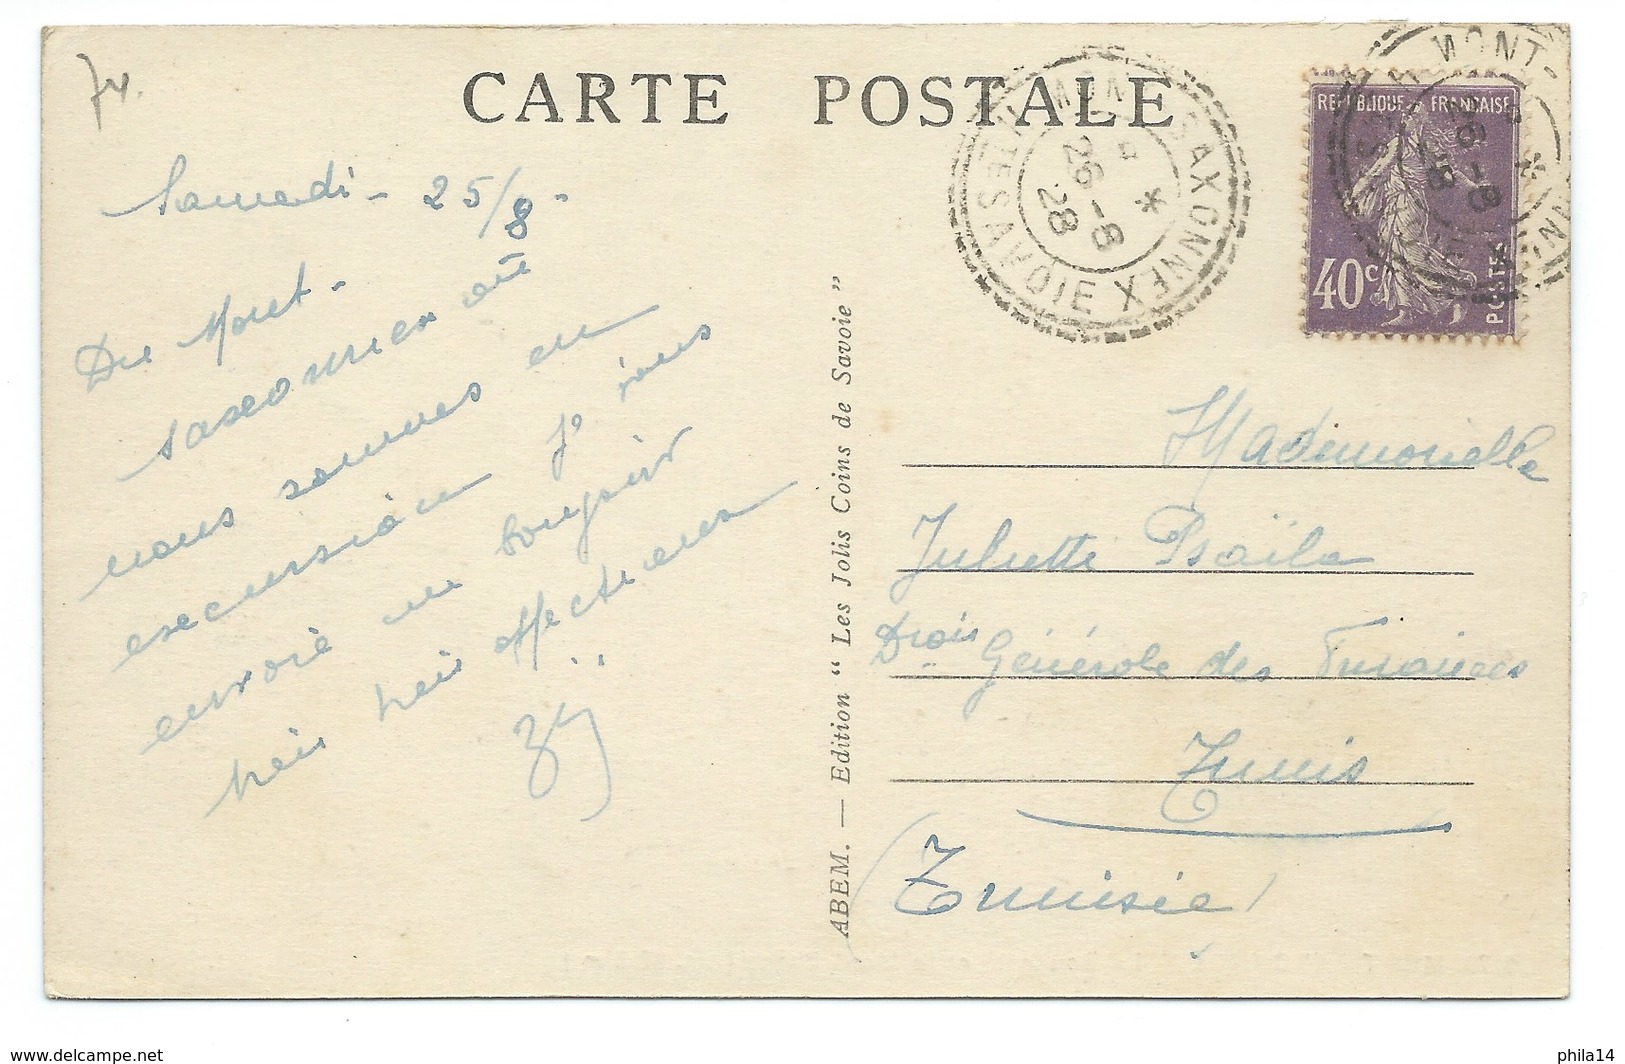 74.
CARTE POSTALE
Samedi - 25/8 -
Du Mont -
saxonnex où
nous sommes en
excursion je vous
envoie un bonjour
très très affectueux
MONT-SAXONNEX
HTE SAVOIE
26 - 8
28
MONT-
26 - 8
28
REPUBLIQUE FRANÇAISE
40c
POSTES
ABEM. — Edition “ Les Jolis Coins de Savoie ”
Mademoiselle
Juliette Psaïla
Générale des Finances
Tunis
(Tunisie)
www.delcampe.net
phila14